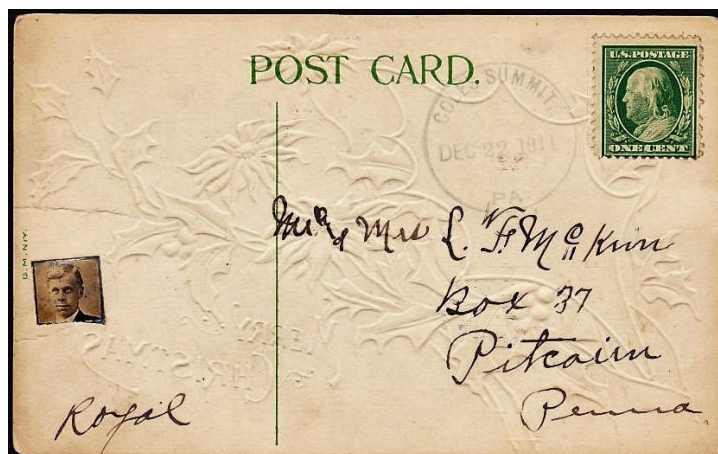 POST CARD.
U.S. POSTAGE
ONE CENT
COLES SUMMIT,
DEC 22 1911
PA
Mr & Mrs L. F. McKinn
Box 37
Pitcairn
Penna
G. M. N.Y.
Royal
MERRY
CHRISTMAS